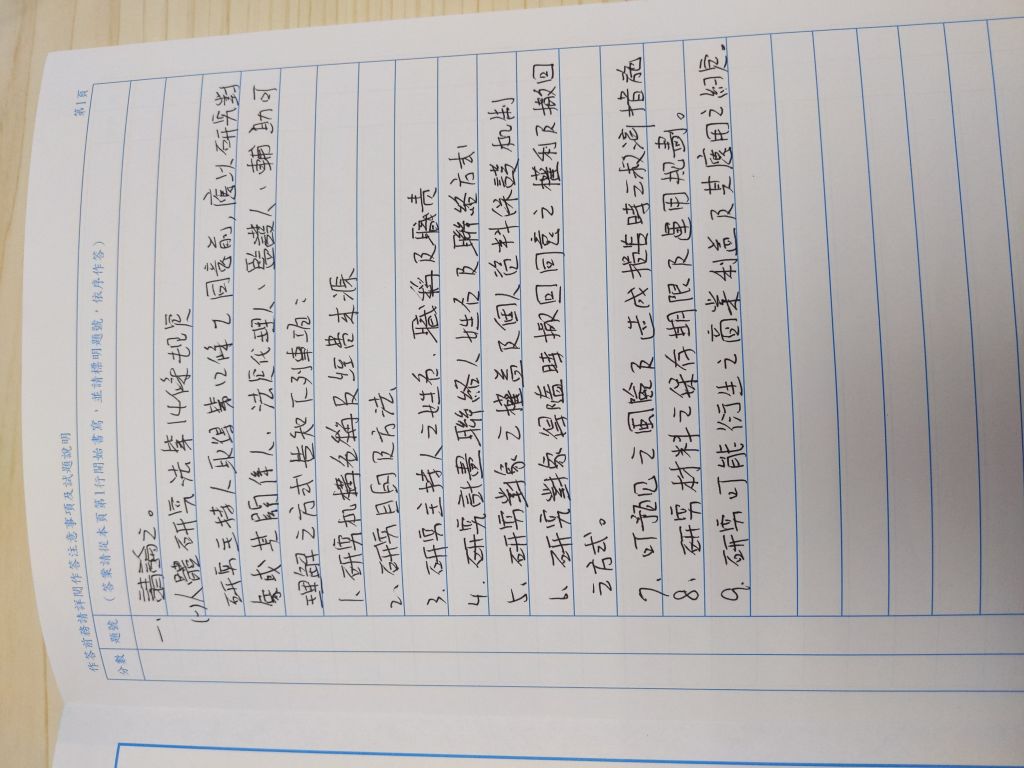 第1頁
作答前務請詳閱作答注意事項及試題說明
（答案請從本頁第1行開始書寫，並請標明題號，依序作答）
分數 題號
一、請論之。
(一)人體研究法第14條規定
研究主持人取得第12條之同意前，應以研究對
象或其關係人、法定代理人、監護人、輔助可
理解之方式告知下列事項：
1、研究机構名稱及經費來源
2、研究目的及方法
3、研究主持人之姓名、職稱及職責
4、研究計畫聯絡人姓名及聯絡方式
5、研究對象之權益及個人資料保護机制
6、研究對象得隨時撤回同意之權利及撤回
之方式。
7、可預見之風險及造成損害時之救濟措施
8、研究材料之保存期限及運用規劃。
9、研究可能衍生之商業利益及其應用之約定。